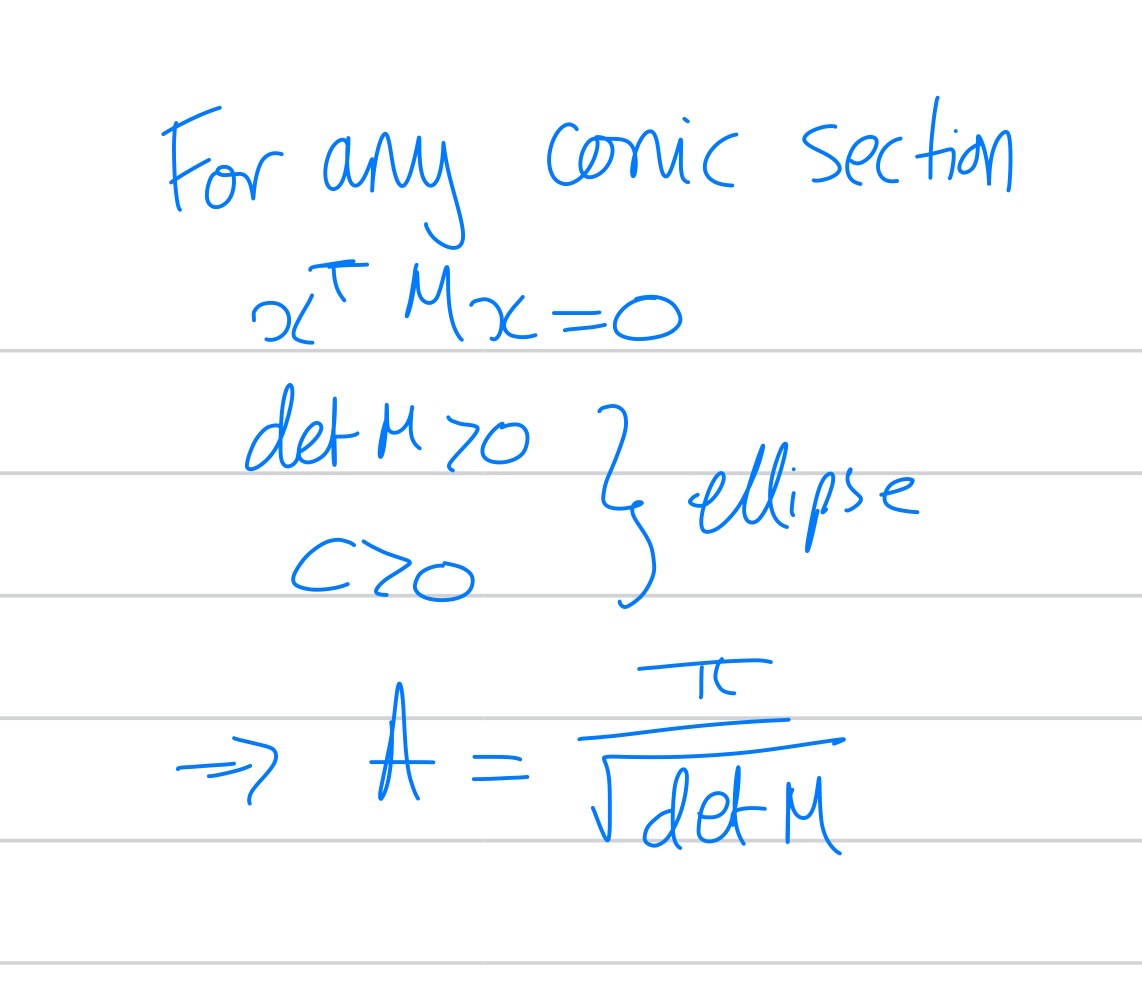 For any conic section
xᵀMx=0
det M>0
C>0 } ellipse
⇒ A = π/√det M